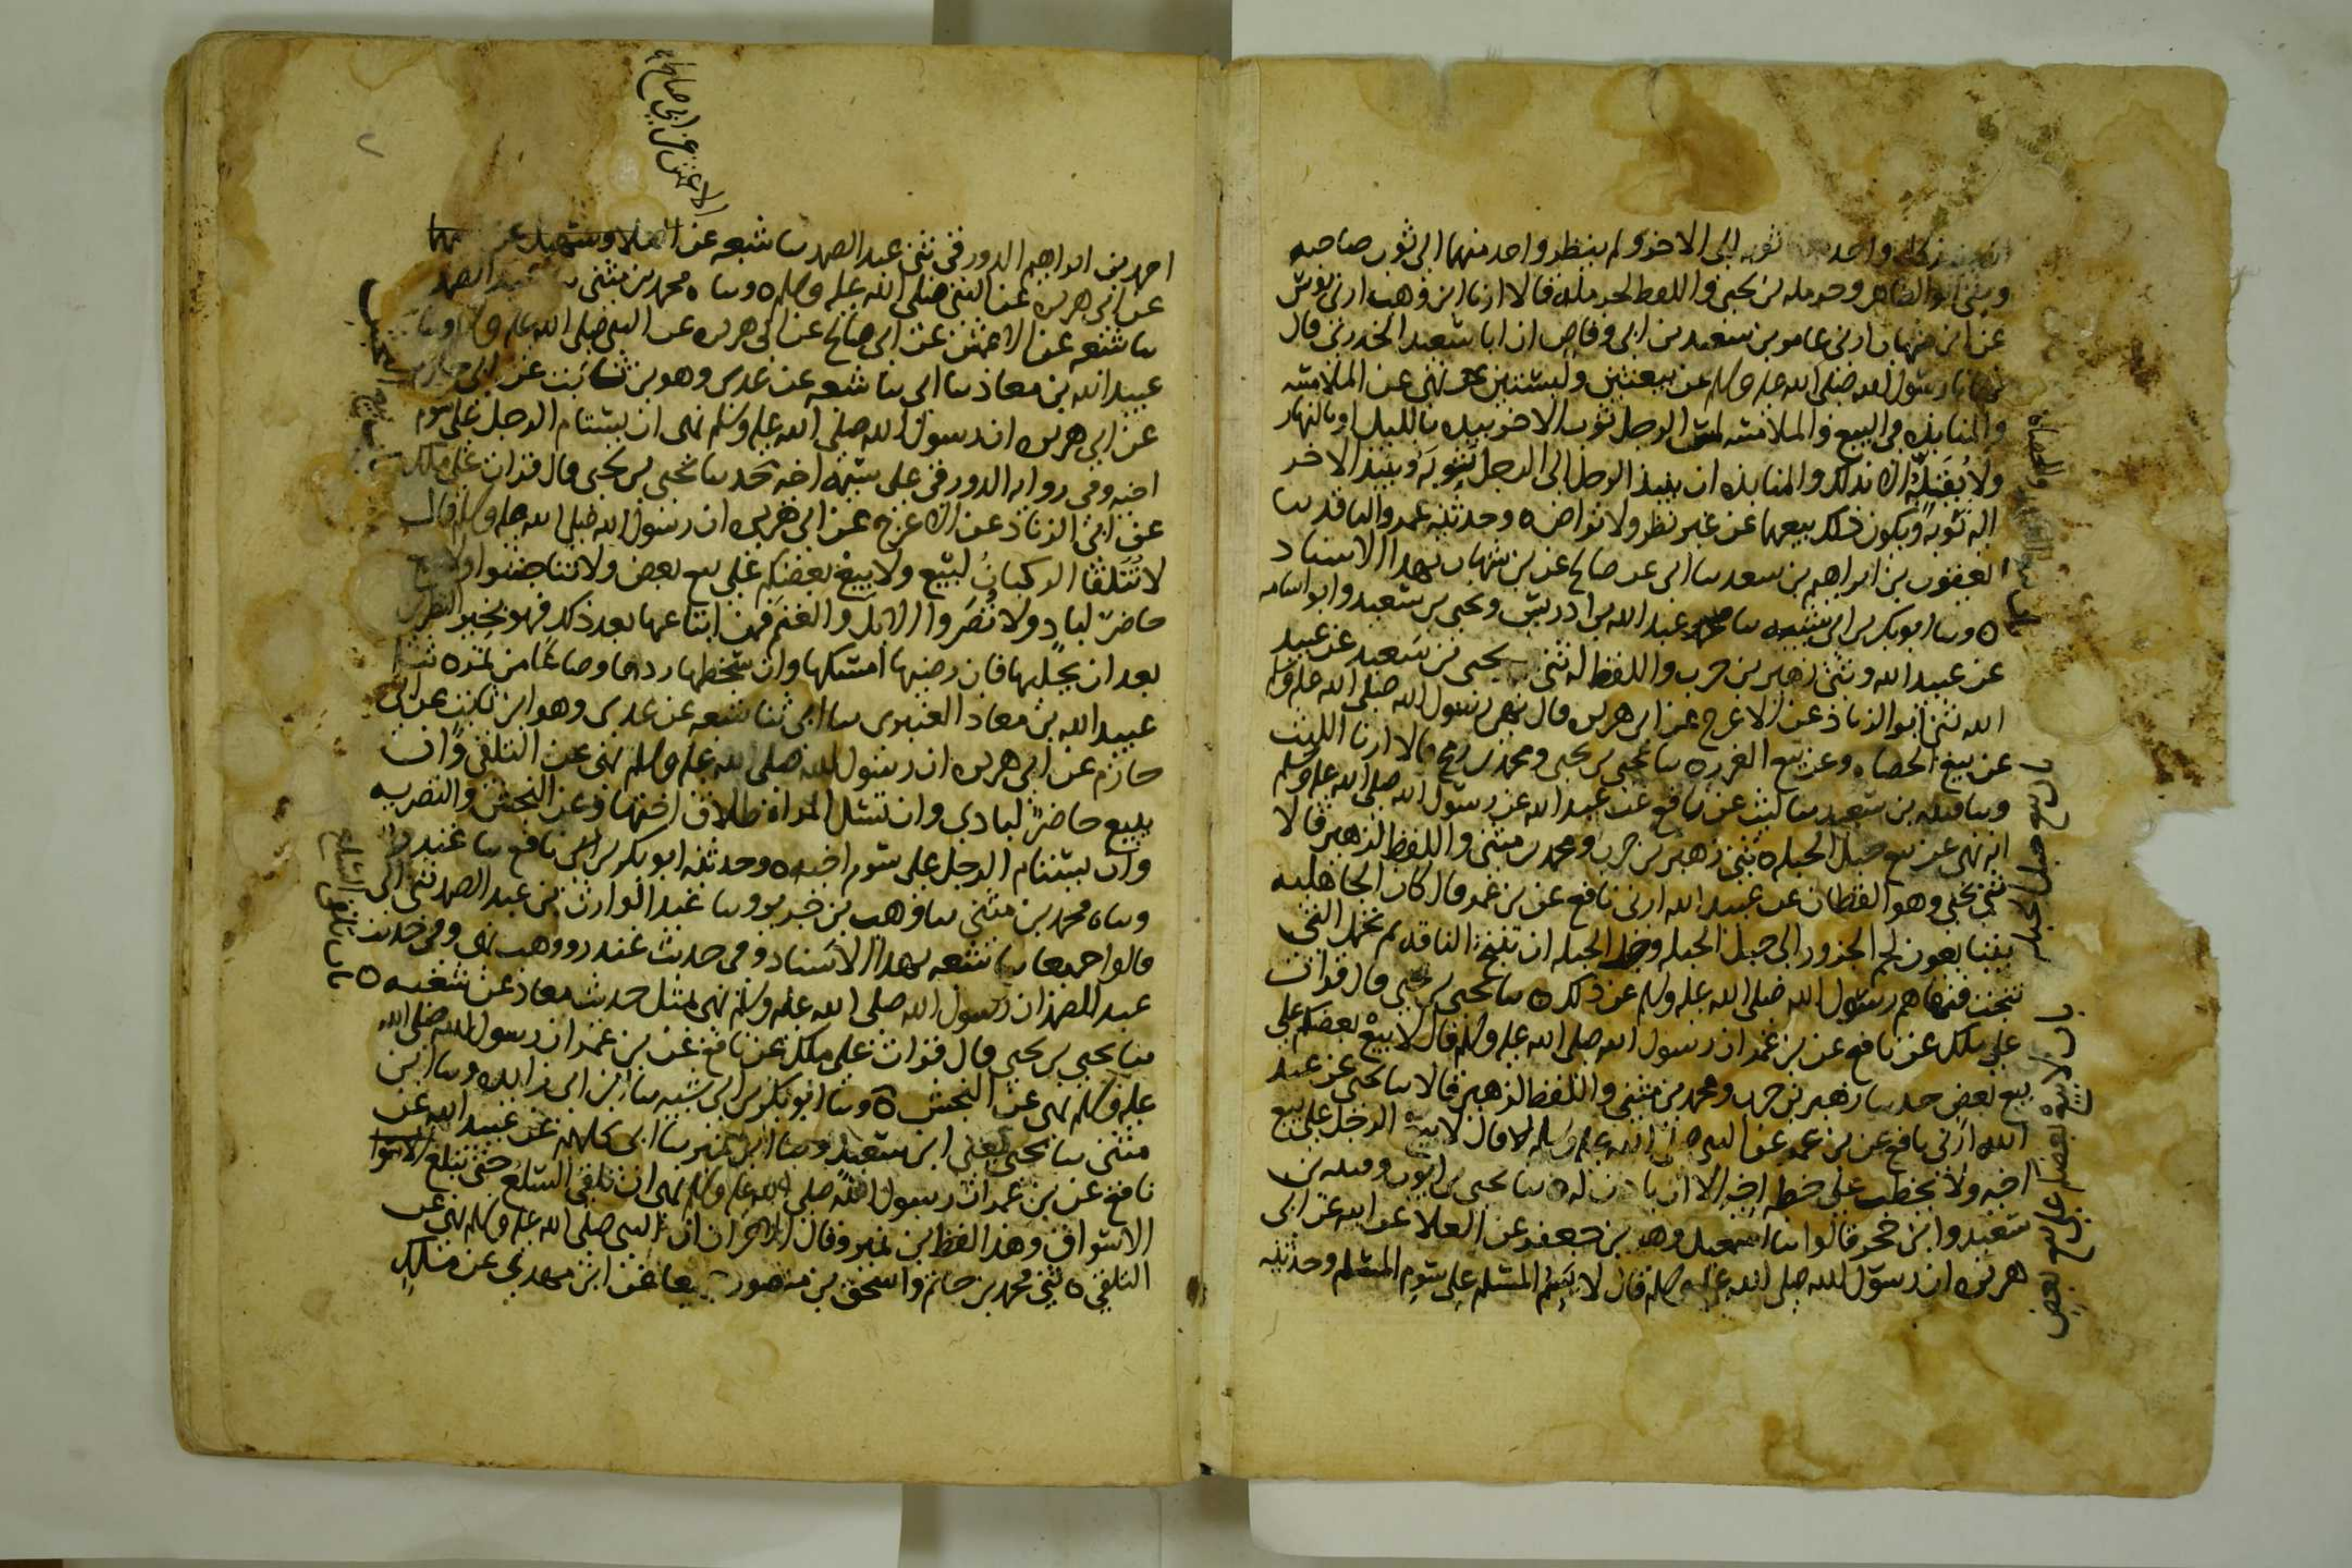 كل واحد ثوبه الى الاخر ولم ينظر واحد منهما الى ثوب صاحبه
وثنى ابو الطاهر وحرمله بن يحيى واللفظ لحرمله قالا ارنا ابن وهب ارنى يونس
عن ابن شهاب ارنى عامر بن سعيد بن ابى وقاص ان ابا سعيد الخدرى قال
نهانا رسول الله صلى الله عليه وسلم عن بيعتين ولبستين نهى عن الملامسه
والمنابذه فى البيع والملامسه لمس الرجل ثوب الاخر بيده بالليل او بالنهار
ولا يقلبه الا بذلك والمنابذه ان ينبذ الرجل الى الرجل بثوبه وينبذ الاخر
اليه ثوبه ويكون ذلك بيعهما عن غير نظر ولا تراض ٥ وحدثنيه عمرو الناقد سا
يعقوب بن ابراهيم بن سعد سا ابى عن صالح عن بن شهاب بهذا الاسناد
٥ وسا ابو بكر بن ابى شيبه سا عبد الله بن ادريس ويحيى بن سعيد وابو اسامه
عن عبيد الله وثنى زهير بن حرب واللفظ له ثنى يحيى بن سعيد عن عبيد
الله ثنى ابو الزناد عن الاعرج عن ابى هريره قال نهى رسول الله صلى الله عليه وسلم
عن بيع الحصاه وعن بيع الغرر ٥ سا يحيى بن يحيى ومحمد بن رمح قالا ارنا الليث
وسا قتيبه بن سعيد سا ليث عن نافع عن عبد الله عن رسول الله صلى الله عليه وسلم
انه نهى عن بيع حبل الحبله ٥ ثنى زهير بن حرب ومحمد بن مثنى واللفظ لزهير قالا
ثنى يحيى وهو القطان عن عبيد الله ارنى نافع عن بن عمر قال كان الجاهليه
يتبايعون لحم الجزور الى حبل الحبله وحبل الحبله ان تنتج الناقه ثم تحمل التى
نتجت فنهاهم رسول الله صلى الله عليه وسلم عن ذلك ٥ سا يحيى بن يحيى قال قرات
على ملك عن نافع عن بن عمر ان رسول الله صلى الله عليه وسلم قال لا يبع بعضكم على
بيع بعض حدسا زهير بن حرب ومحمد بن مثنى واللفظ لزهير قالا سا يحيى عن عبيد
الله ارنى نافع عن بن عمر عن النبى صلى الله عليه وسلم قال لا يبع الرجل على بيع
اخيه ولا يخطب على خطبه اخيه الا ان ياذن له ٥ سا يحيى بن ايوب وقتيبه بن
سعيد وابن حجر قالوا سا اسمعيل وهو بن جعفر عن العلا عن ابيه عن ابى
هريره ان رسول الله صلى الله عليه وسلم قال لا يسم المسلم على سوم المسلم وحدثنيه
باب بيع حبل الحبله
باب لا يبع بعضكم على بيع بعض
الاعمش عن ابى صالح
احمد بن ابراهيم الدورقى ثنى عبد الصمد سا شعبه عن العلا وسهيل عن
عن ابى هريره عن النبى صلى الله عليه وسلم ٥ وساه محمد بن مثنى سا عبد الصمد
سا شعبه عن الاعمش عن ابى صالح عن ابى هريره عن النبى صلى الله عليه وسلم وسا
عبيد الله بن معاذ سا ابى سا شعبه عن عدى وهو بن ثابت عن ابى حازم
عن ابى هريره ان رسول الله صلى الله عليه وسلم نهى ان يستام الرجل على سوم
اخيه وفى روايه الدورقى على سيمه اخيه حدسا يحيى بن يحيى قال قرات على ملك
عن ابى الزناد عن الاعرج عن ابى هريره ان رسول الله صلى الله عليه وسلم قال
لا تتلقا الركبان لبيع ولا يبع بعضكم على بيع بعض ولا تناجشوا ولا يبع
حاضر لباد ولا تصروا الابل والغنم فمن ابتاعها بعد ذلك فهو بخير النظرين
بعد ان يحلبها فان رضيها امسكها وان سخطها ردها وصاعا من تمر ٥ ثنا
عبيد الله بن معاذ العنبرى سا ابى ثنا شعبه عن عدى وهو ابن ثابت عن ابى
حازم عن ابى هريره ان رسول الله صلى الله عليه وسلم نهى عن التلقى وان
يبيع حاضر لبادى وان تسل المراه طلاق اختها وعن النجش والتصريه
وان يستام الرجل على سوم اخيه ٥ وحدثنيه ابو بكر بن نافع سا غندر
وساه محمد بن مثنى سا وهب بن جرير وسا عبد الوارث بن عبد الصمد ثنى ابى
قالوا جميعا سا شعبه بهذا الاسناد وفى حديث غندر ووهب نهى وفى حديث
عبد الصمد ان رسول الله صلى الله عليه وسلم نهى بمثل حديث معاذ عن شعبه ٥
سا يحيى بن يحيى قال قرات على ملك عن نافع عن بن عمر ان رسول الله صلى الله
عليه وسلم نهى عن النجش ٥ وسا ابو بكر بن ابى شيبه سا ابن ابى زايده وسا ابن
مثنى سا يحيى يعنى ابن سعيد وسا ابن نمير سا ابى كلهم عن عبيد الله عن
نافع عن بن عمر ان رسول الله صلى الله عليه وسلم نهى ان تلقى السلع حتى تبلغ
الاسواق وهذا لفظ ابن نمير وقال الاخران ان النبى صلى الله عليه وسلم نهى عن
التلقى ٥ ثنى محمد بن حاتم واسحق بن منصور جميعا عن ابن مهدى عن ملك
باب تلقى السلع